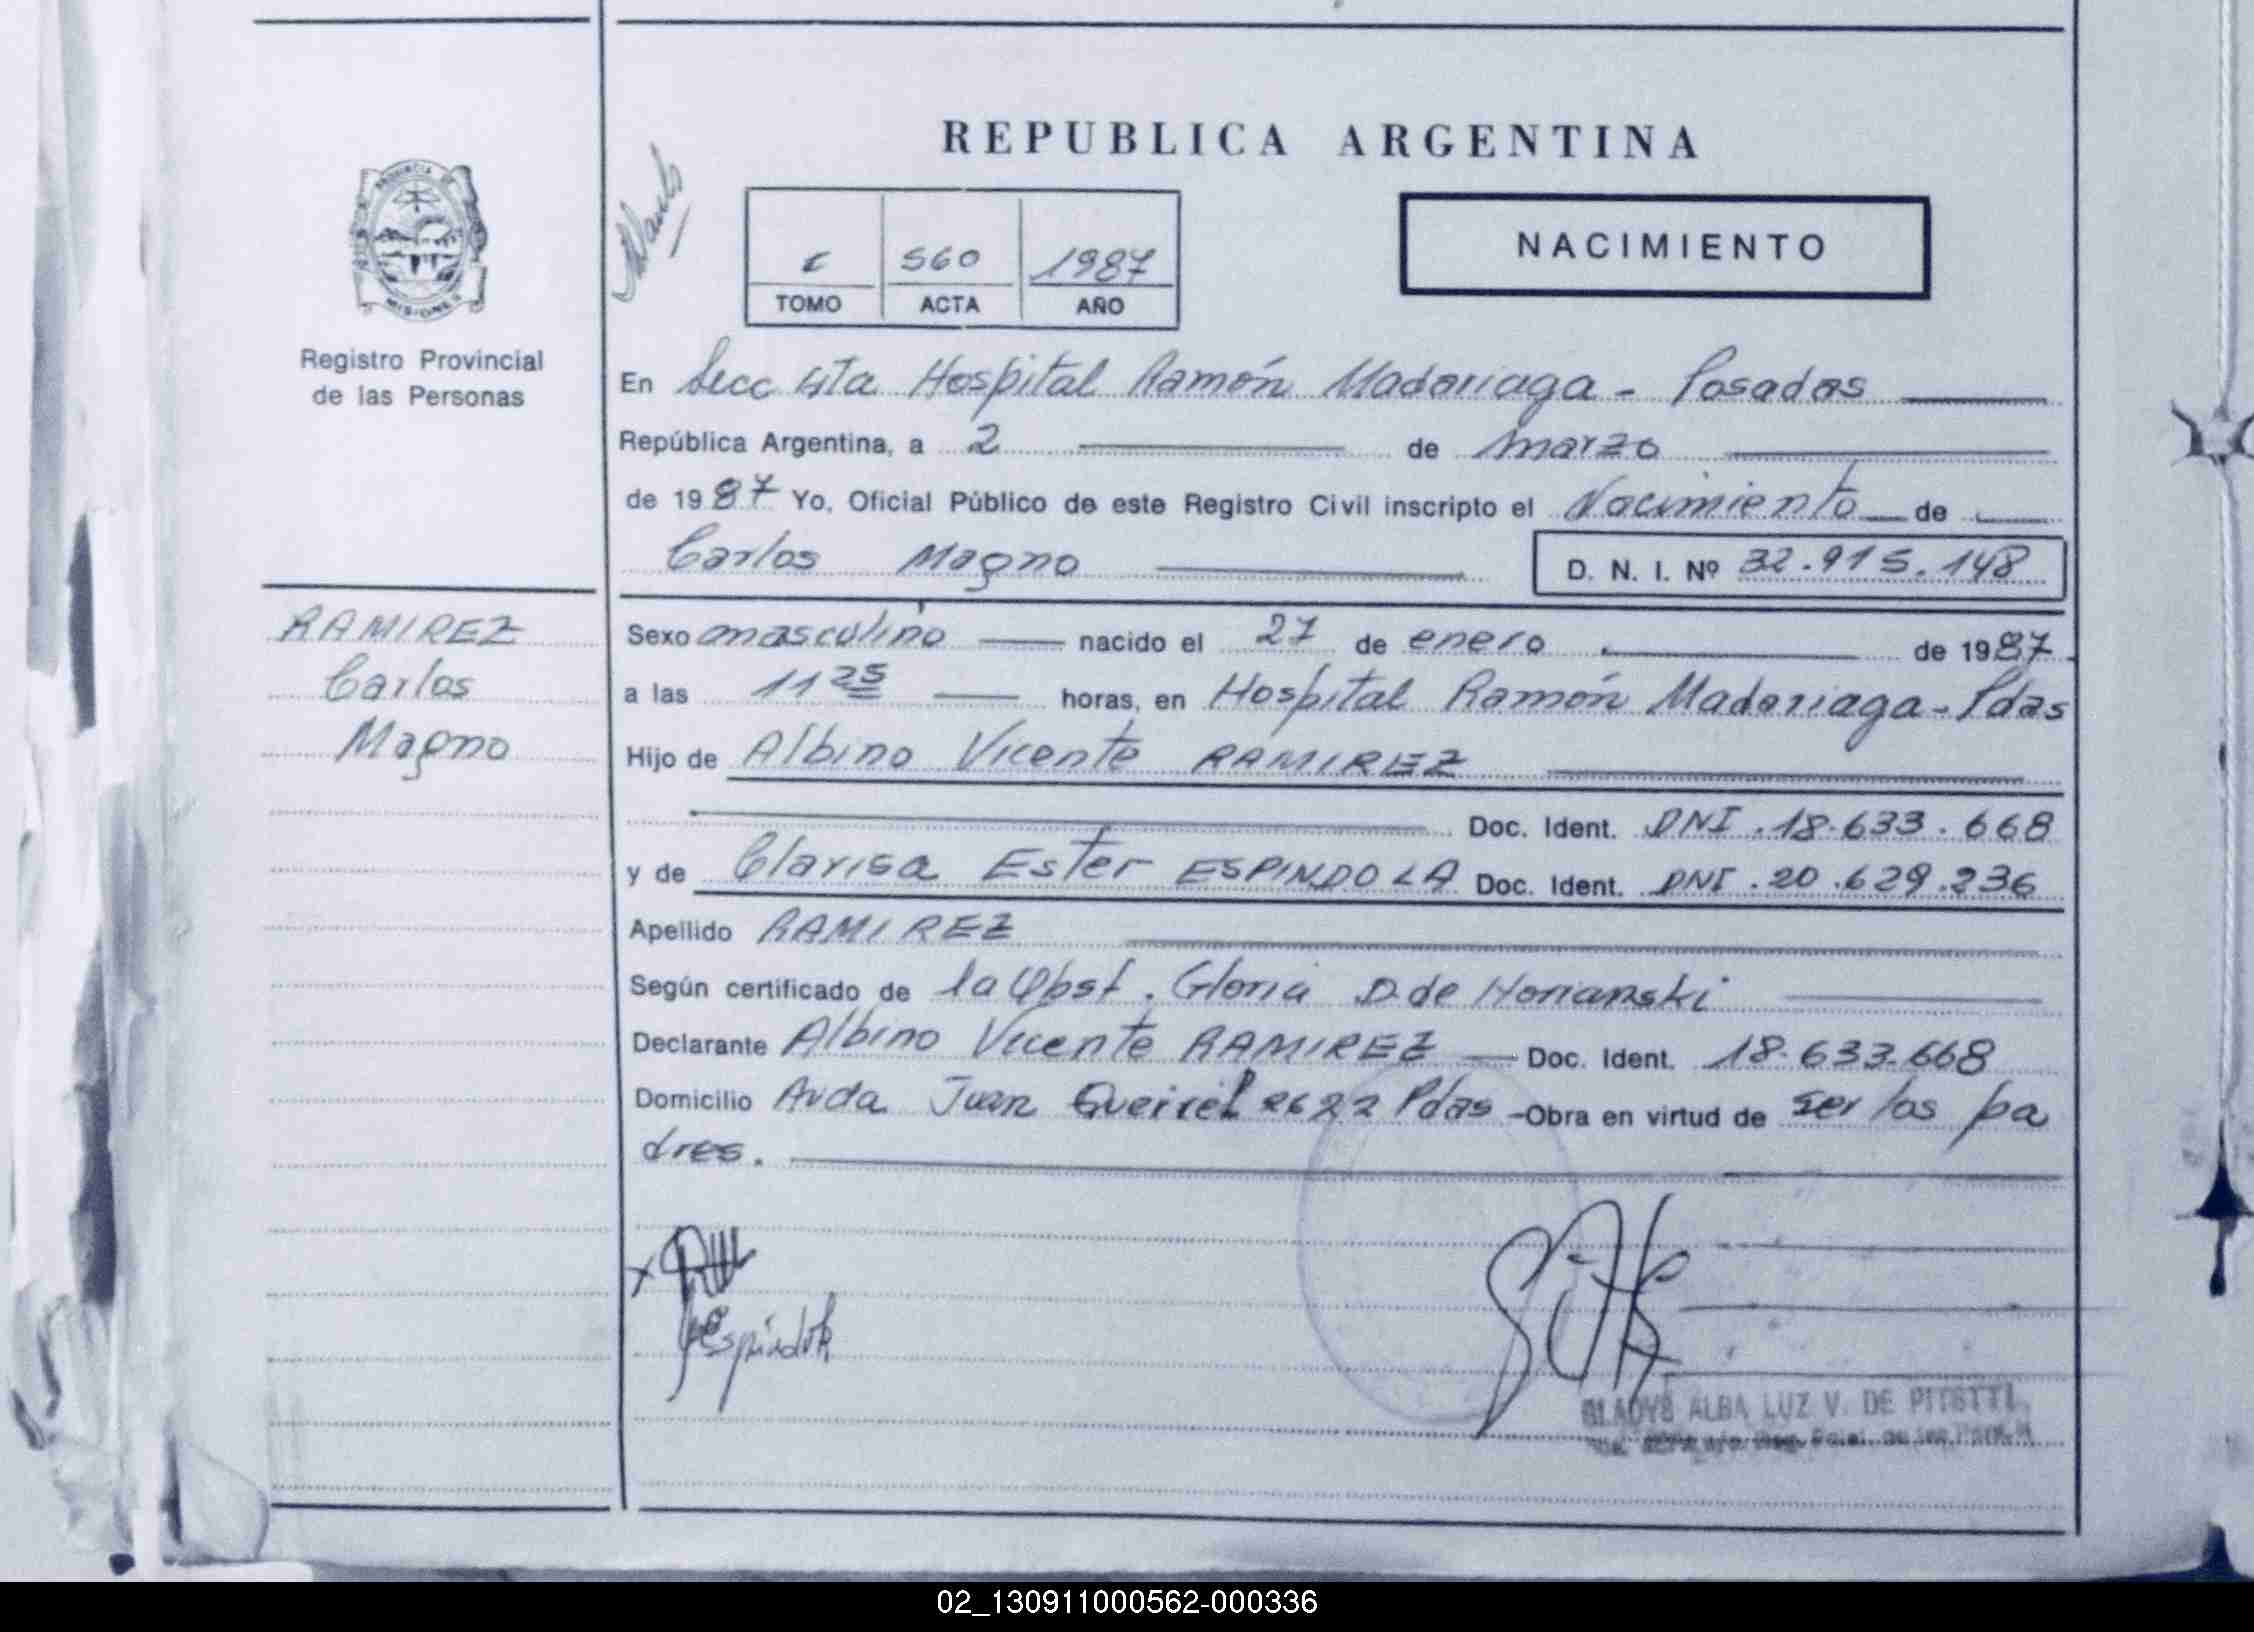 REPUBLICA ARGENTINA
PROVINCIA
MISIONES
560 1987
TOMO ACTA AÑO
NACIMIENTO
Registro Provincial
de las Personas
En Secc 4ta Hospital Ramón Madariaga - Posadas
República Argentina, a 2 de marzo
de 1987 Yo, Oficial Público de este Registro Civil inscripto el Nacimiento de
Carlos Magno D. N. I. Nº 32.915.148
RAMIREZ
Carlos
Magno
Sexo masculino nacido el 27 de enero de 1987
a las 11 25 horas, en Hospital Ramón Madariaga - Pdas
Hijo de Albino Vicente RAMIREZ
Doc. Ident. DNI. 18.633.668
y de Clarisa Ester ESPINDOLA Doc. Ident. DNI. 20.629.236
Apellido RAMIREZ
Según certificado de la Obst. Gloria D. de
Declarante Albino Vicente RAMIREZ Doc. Ident. 18.633.668
Domicilio Avda Juan Queirel 2622 Pdas - Obra en virtud de ser los pa
dres.
Espindola
GLADYS ALBA LUZ V. DE
02_130911000562-000336